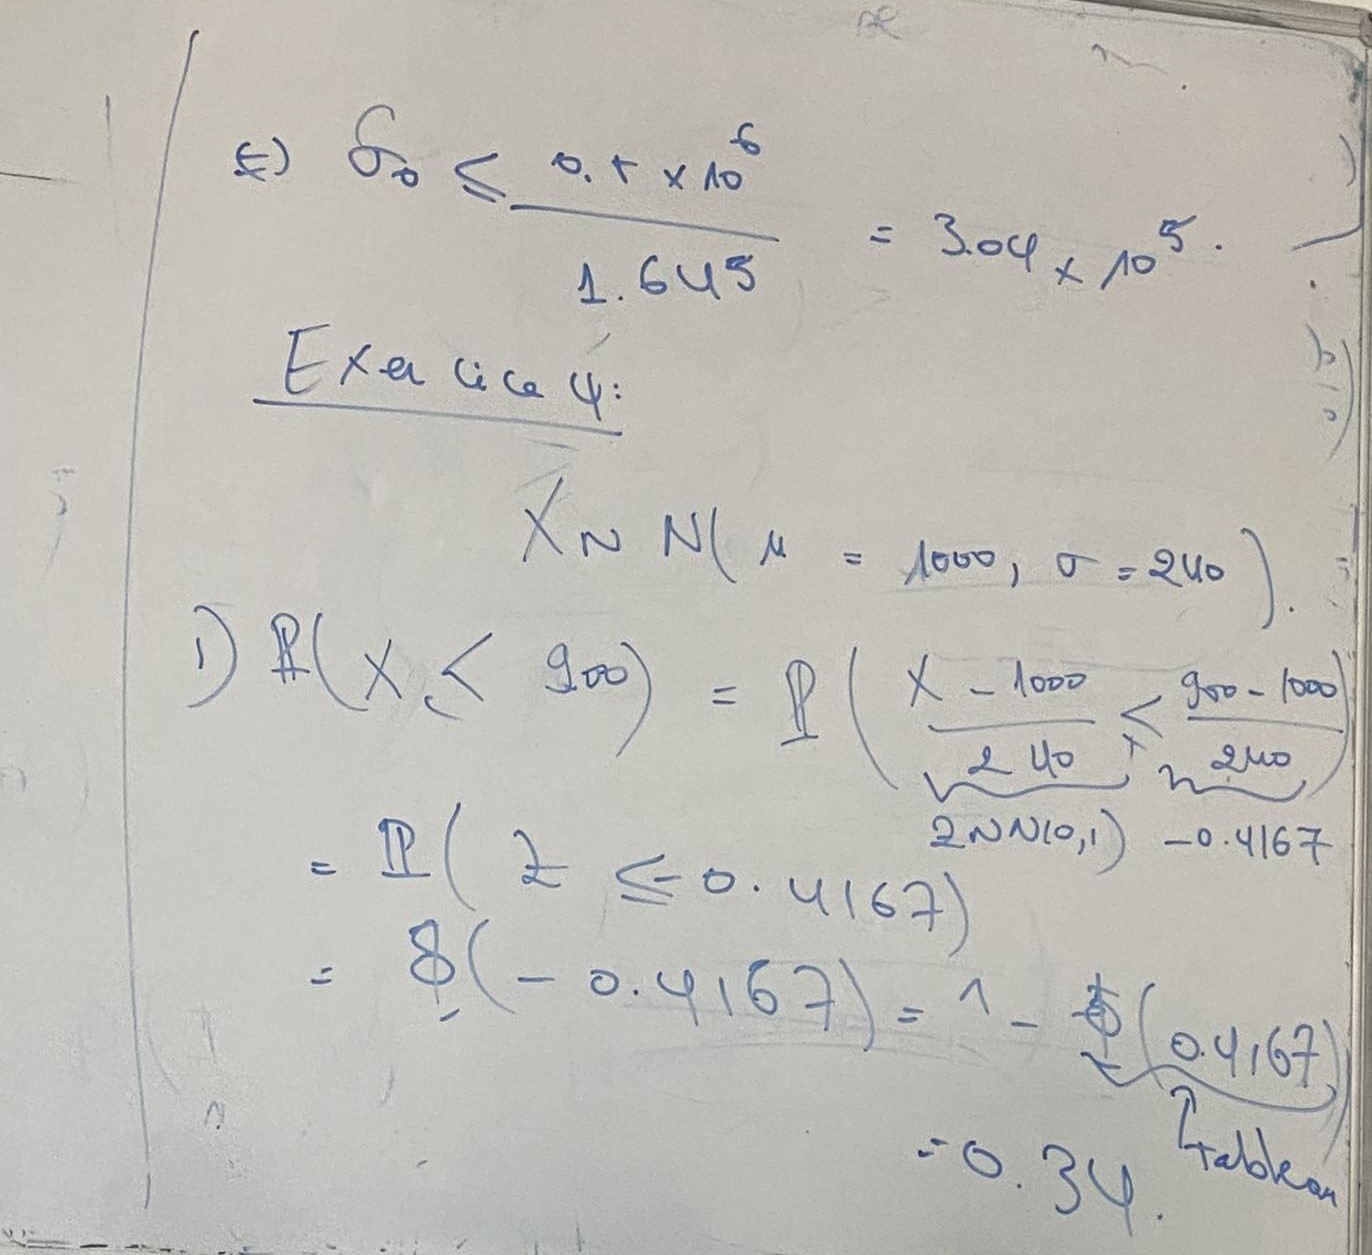 ⇔) σ₀ ≤ 0.5 × 10⁶ / 1.645 = 3.04 × 10⁵.
Exercice 4:
X ~ N( μ = 1000, σ = 240 ).
1) ℙ( X < 900 ) = ℙ( (X - 1000)/240 < (900 - 1000)/240 )
Z ~ N(0,1) -0.4167
= ℙ( Z ≤ -0.4167)
= Φ( - 0.4167) = 1 - Φ(0.4167)
= 0.34. ↑ tableau